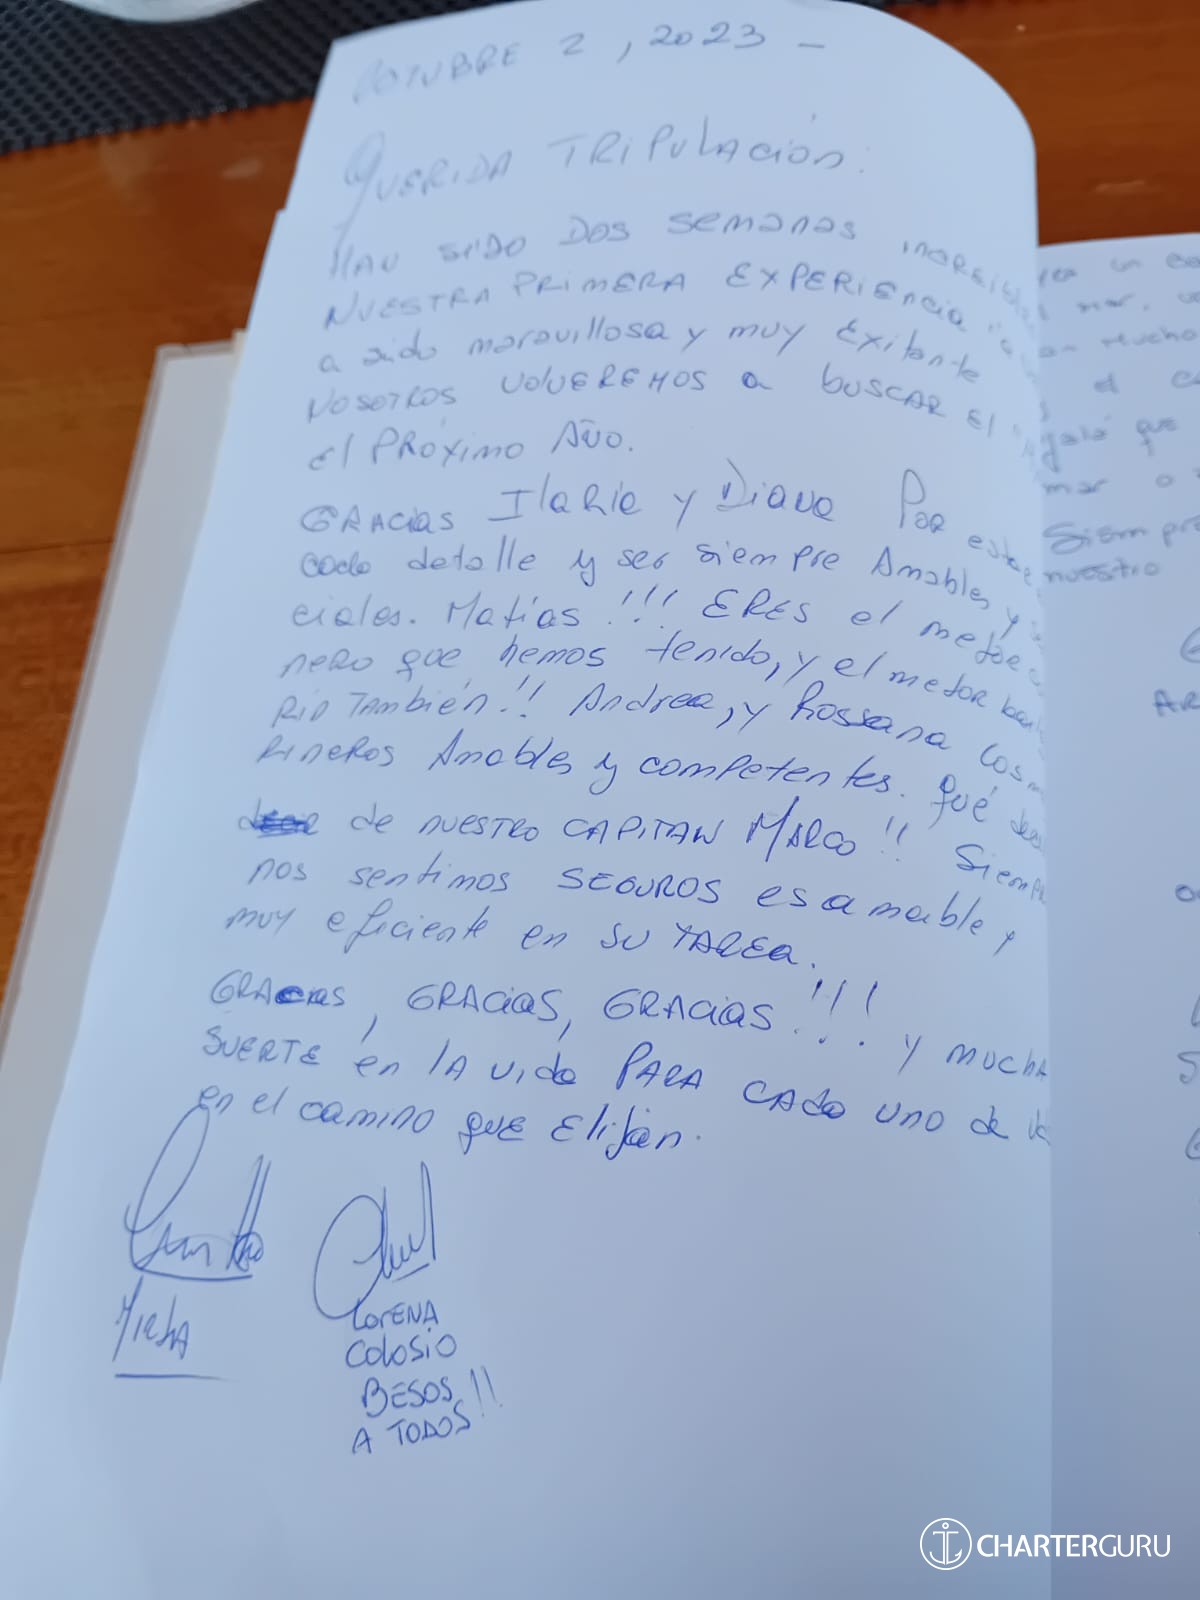 OCTUBRE 2, 2023 -
QUERIDA TRIPULACIÓN:
HAN SIDO DOS SEMANAS
NUESTRA PRIMERA EXPERIENCIA
a sido maravillosa y muy Exitante
NOSOTROS VOLVEREMOS a buscar el
el PRÓXIMO AÑO.
GRACias Ilaria y Diana Por
cada detalle y ser siempre Amables y
ciales. Matías !!! ERES el mejor
nero que hemos tenido, y el mejor
RIO También!! Andrea, y Rossana los
RINEROS Amables y competentes. Qué
de nuestro CAPITAN MARCO!! Siempre
nos sentimos SEGUROS es amable y
muy eficiente en SU TAREA.
GRACias, GRACias, GRACias!!! y mucha
SUERTE en la vida PARA cada uno de
en el camino que Elijan.
LORENA
COLOSIO
BESOS
A TODOS!!
mar.
mucho
el
que
mar o
Siempre
nuestro
CHARTERGURU